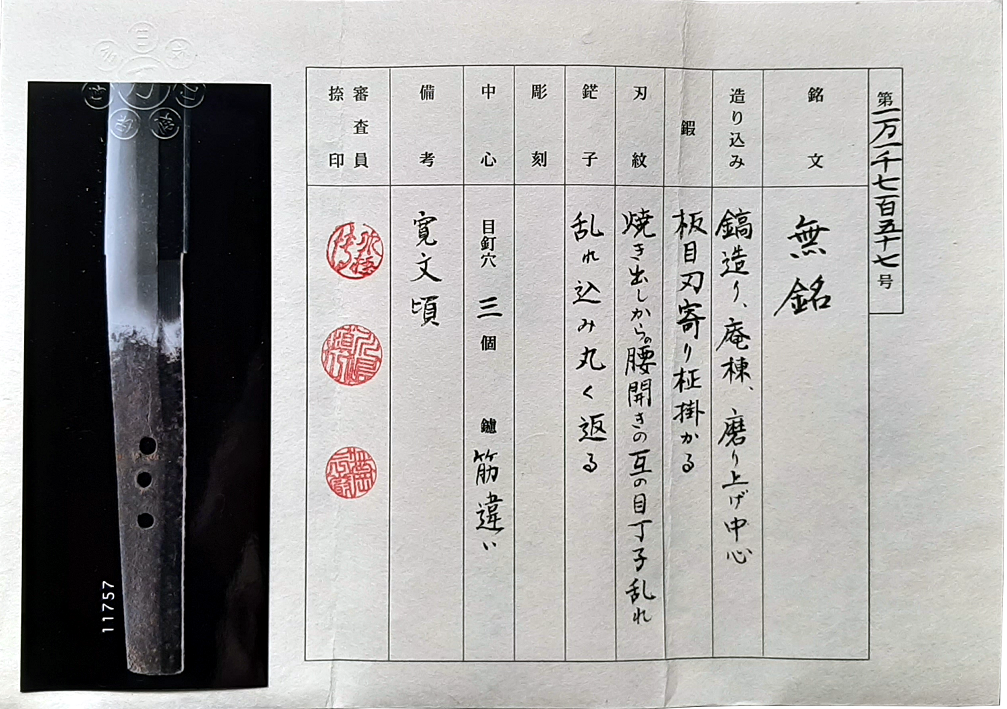 第一万一千七百五十七号
銘文
無銘
造り込み
鎬造り、庵棟、磨り上げ中心
鍜
板目刃寄り柾掛かる
刃紋
焼き出しから腰開きの互の目丁子乱れ
鋩子
乱れ込み丸く返る
彫刻
中心
目釘穴 三 個 鑢 筋違い
備考
寛文頃
審査員
捺印
11757